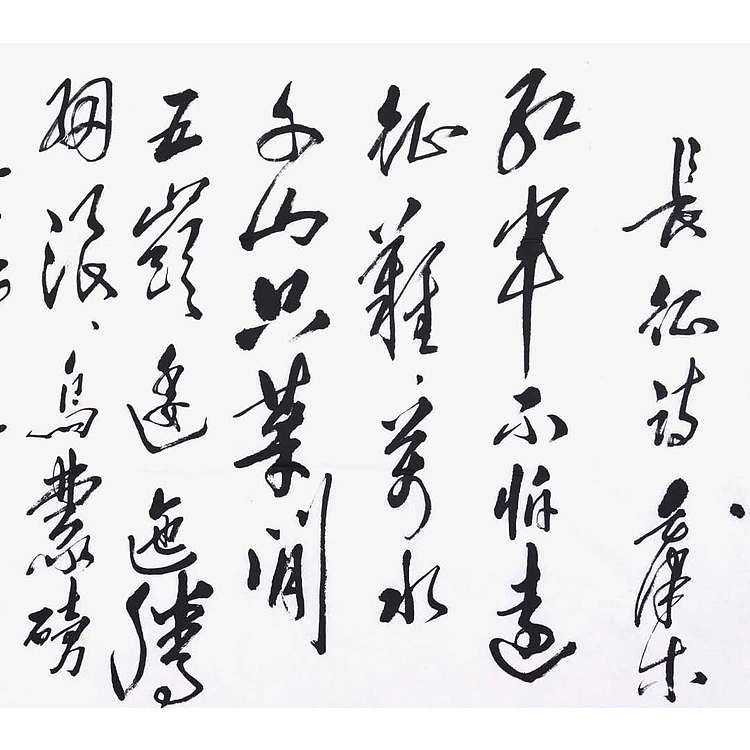 長征诗 毛澤东
红军不怕遠
征難、萬水
千山只等閒
五嶺逶迤騰
細浪、烏蒙磅